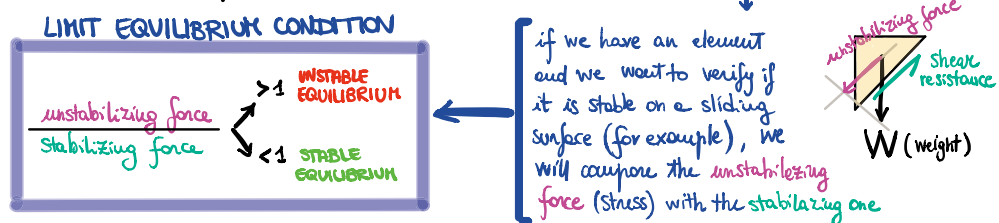 LIMIT EQUILIBRIUM CONDITION
unstabilizing force
stabilizing force
>1 UNSTABLE
EQUILIBRIUM
<1 STABLE
EQUILIBRIUM
if we have an element
and we want to verify if
it is stable on a sliding
surface (for example), we
will compare the unstabilezing
force (stress) with the stabilazing one
unstabilizing force
shear
resistance
W (weight)